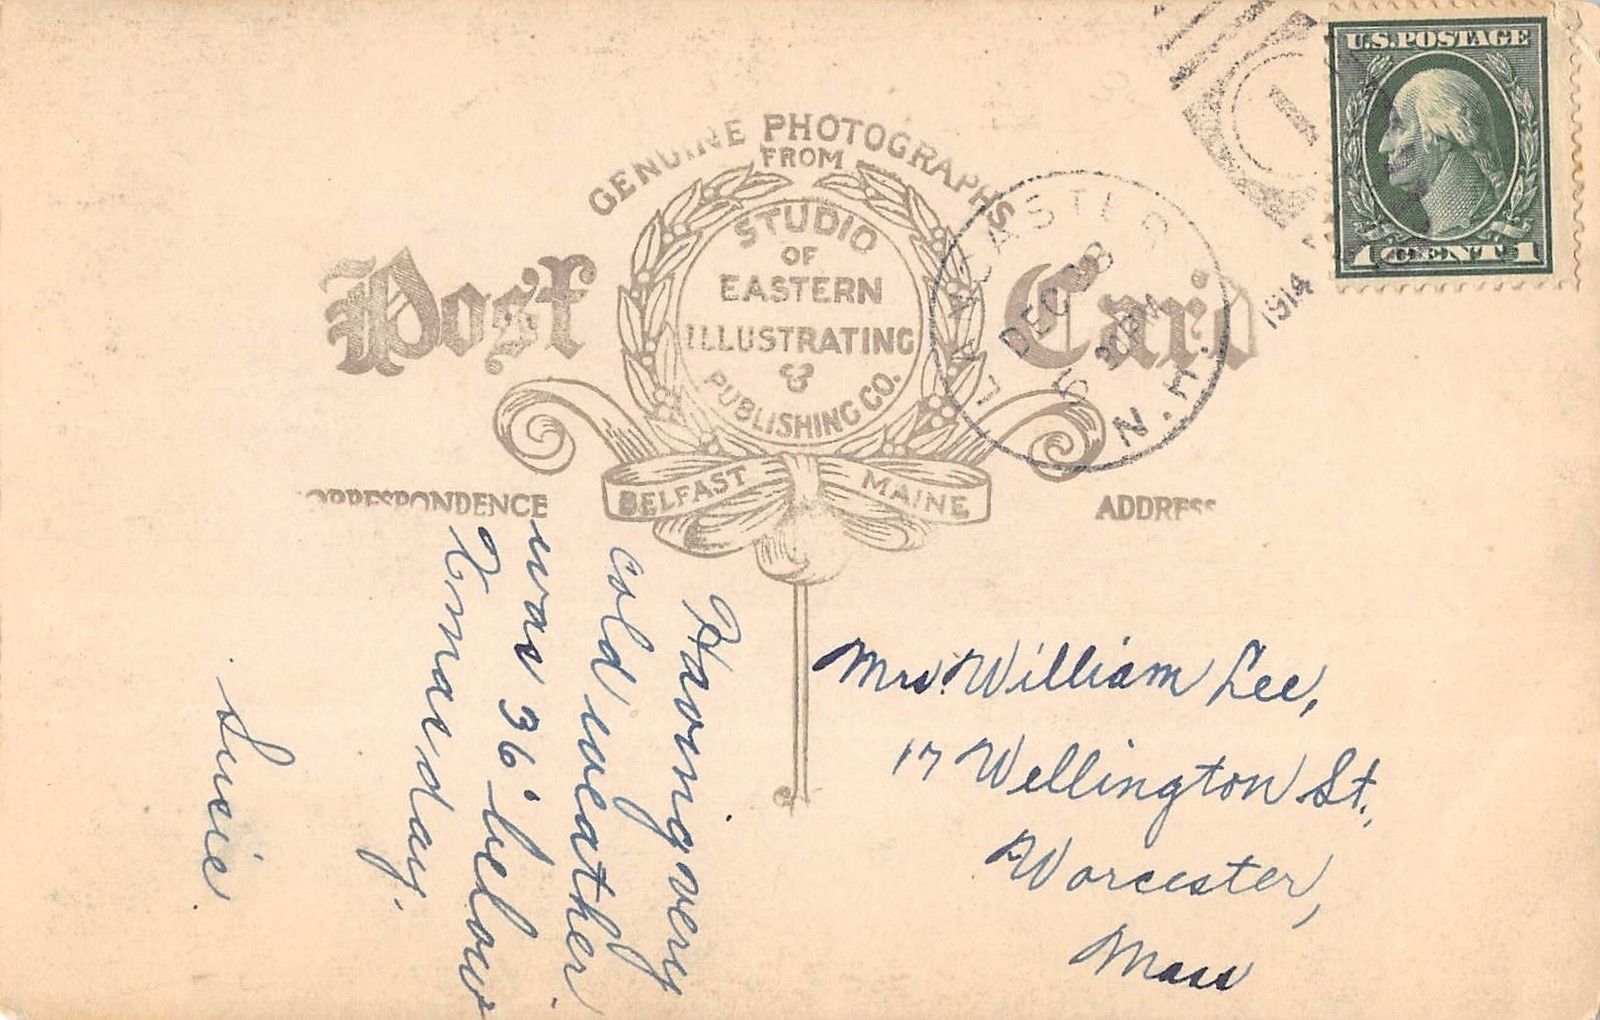 GENUINE PHOTOGRAPHS
FROM
STUDIO
OF
EASTERN
ILLUSTRATING
&
PUBLISHING CO.
BELFAST MAINE
Post Card
LANCASTER
DEC 28
5 30 PM
N.H.
1914
1
U.S. POSTAGE
1 CENT 1
CORRESPONDENCE
ADDRESS
Having very
cold weather.
was 36° below
Xmas day.
Susie.
Mrs. William Lee,
17 Wellington St.,
Worcester,
Mass